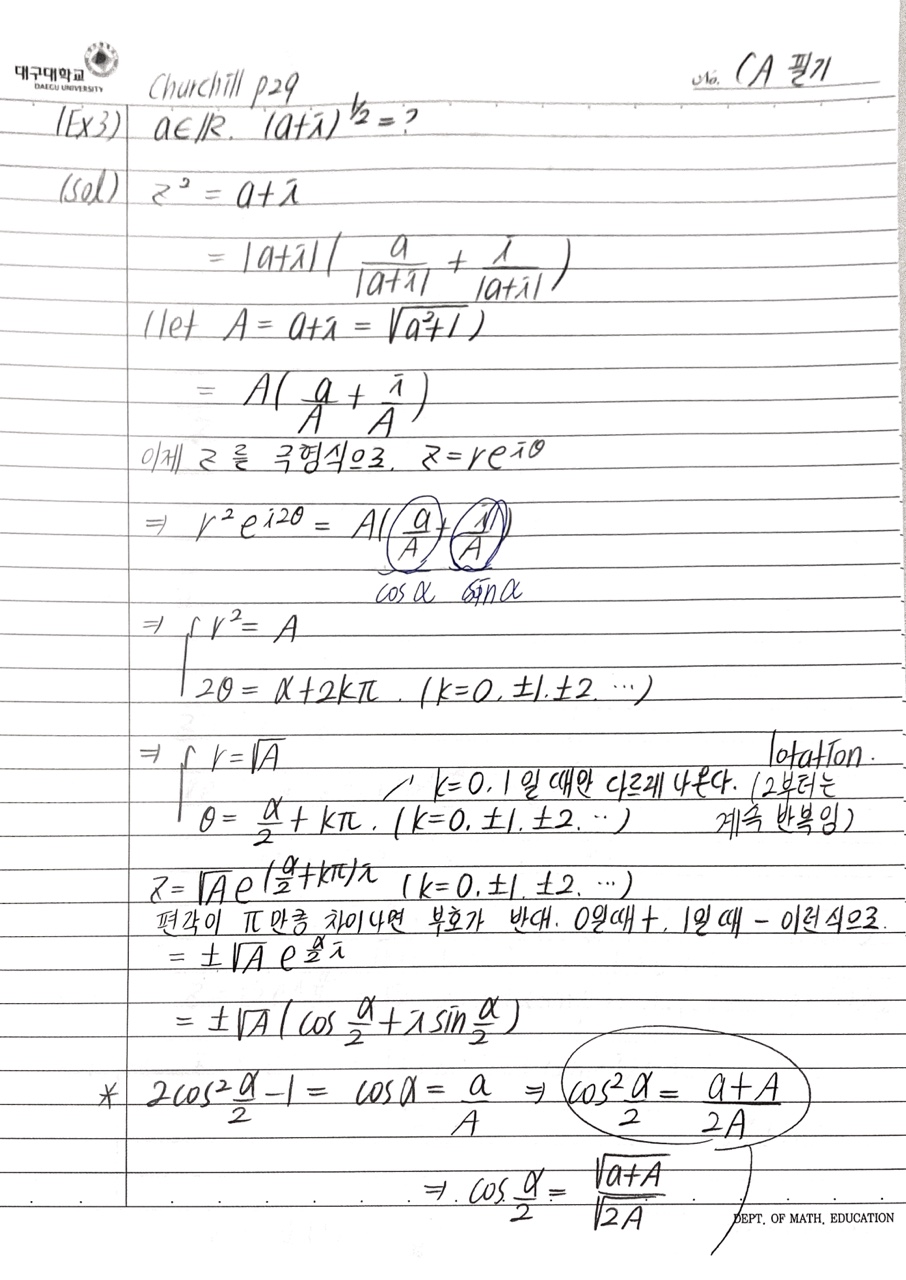 대구대학교
DAEGU UNIVERSITY
Churchill p29
No. CA 필기
(Ex3) a∈ℝ. (a+i)^{1/2} = ?
(sol) z² = a+i
= |a+i| ( a/|a+i| + i/|a+i| )
(let A = a+i = √(a²+1) )
= A( a/A + i/A )
이제 z를 극형식으로. z=re^{iθ}
⇒ r²e^{i2θ} = A( a/A + i/A )
cosα sinα
⇒ { r² = A
2θ = α+2kπ. (k=0. ±1. ±2. ⋯)
⇒ { r = √A
lotation.
k=0. 1일 때만 다르레 나온다. (2부터는
계속 반복임)
θ = α/2 + kπ. (k=0. ±1. ±2. ⋯)
z = √A e^{(α/2+kπ)i} (k=0. ±1. ±2. ⋯)
편각이 π만큼 차이나면 부호가 반대. 0일때 +. 1일 때 - 이런식으로.
= ±√A e^{α/2 i}
= ±√A (cos α/2 + i sin α/2)
* 2cos² α/2 - 1 = cosα = a/A ⇒ cos² α/2 = (a+A)/2A
⇒. cos α/2 = √(a+A)/√(2A)
DEPT. OF MATH. EDUCATION